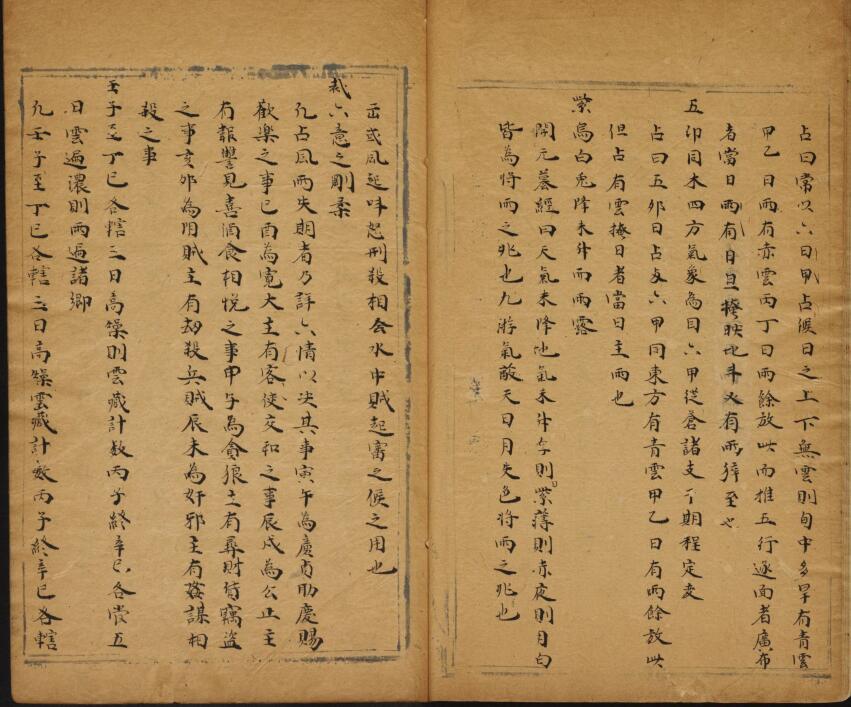 占曰常以六日甲占候日之上下無雲則旬中多旱有青雲
甲乙日雨有赤雲丙丁日雨餘放此而推五行逐面者廣布
者當日雨有日旦掩映也斗又有雨猝至也
五卯同木四方氣象為目六甲從蒼諸支下期程定度
占曰五卯日占与六甲同東方有青雲甲乙日有雨餘放此
但占有雲掩日者當日主雨也
紫烏白兎降未升而雨露
開元纂經曰天氣未降地氣未升今則紫薄則赤夜則月白
皆為將雨之兆也凡游氣蔽天日月失色將雨之兆也
風延時起刑殺相會水中賊起害之候之用也
哉六意之剛柔
凡占風雨失期者乃詳六情以決其事寅午為廣貞助慶賜
歡樂之事巳酉為寬大主有客使交和之事辰戌為公正主
有報讐見喜酒食相悅之事申子為貪狼主有彝財皆竊盜
之事亥卯為陰賊主有劫殺兵賊辰未為奸邪主有姦謀相
殺之事
壬子至丁巳各轄三日高鎳則雲藏計數丙子終辛巳各嘗五
日雲遍濃則雨遍諸鄉
凡壬子至丁巳各轄三日高鎳雲藏計數丙子終辛巳各轄